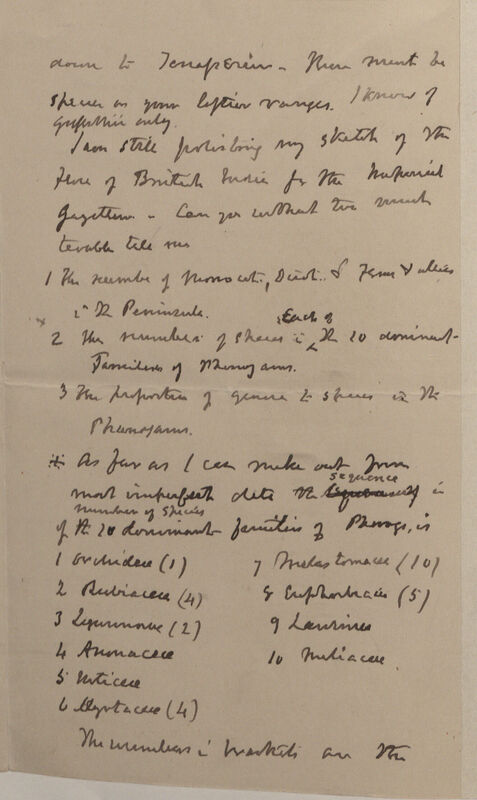 down to Tenasserim – There must be
species on your loftier ranges. I know of
Griffithii only.
I am still polishing my sketch of the
Flora of British India for the Imperial
Gazetteer – Can you without too much
trouble tell me
1 The number of Monocot., Dicot. & Ferns & allies
in the Peninsula.
2 The number of species in each of the 20 dominant
Families of Phenogams.
3 The proportion of genera to species in the
Phenogams.
As far as I can make out from
most imperfect data the sequence in
number of species
of the 20 dominant families of Phenogs, is
1 Orchideae (1)
2 Rubiaceae (4)
3 Leguminosae (2)
4 Anonaceae
5 Urticeae
6 Myrtaceae (4)
7 Melastomaceae (10)
8 Euphorbiaceae (5)
9 Laurineae
10 Meliaceae
The numbers in brackets are the